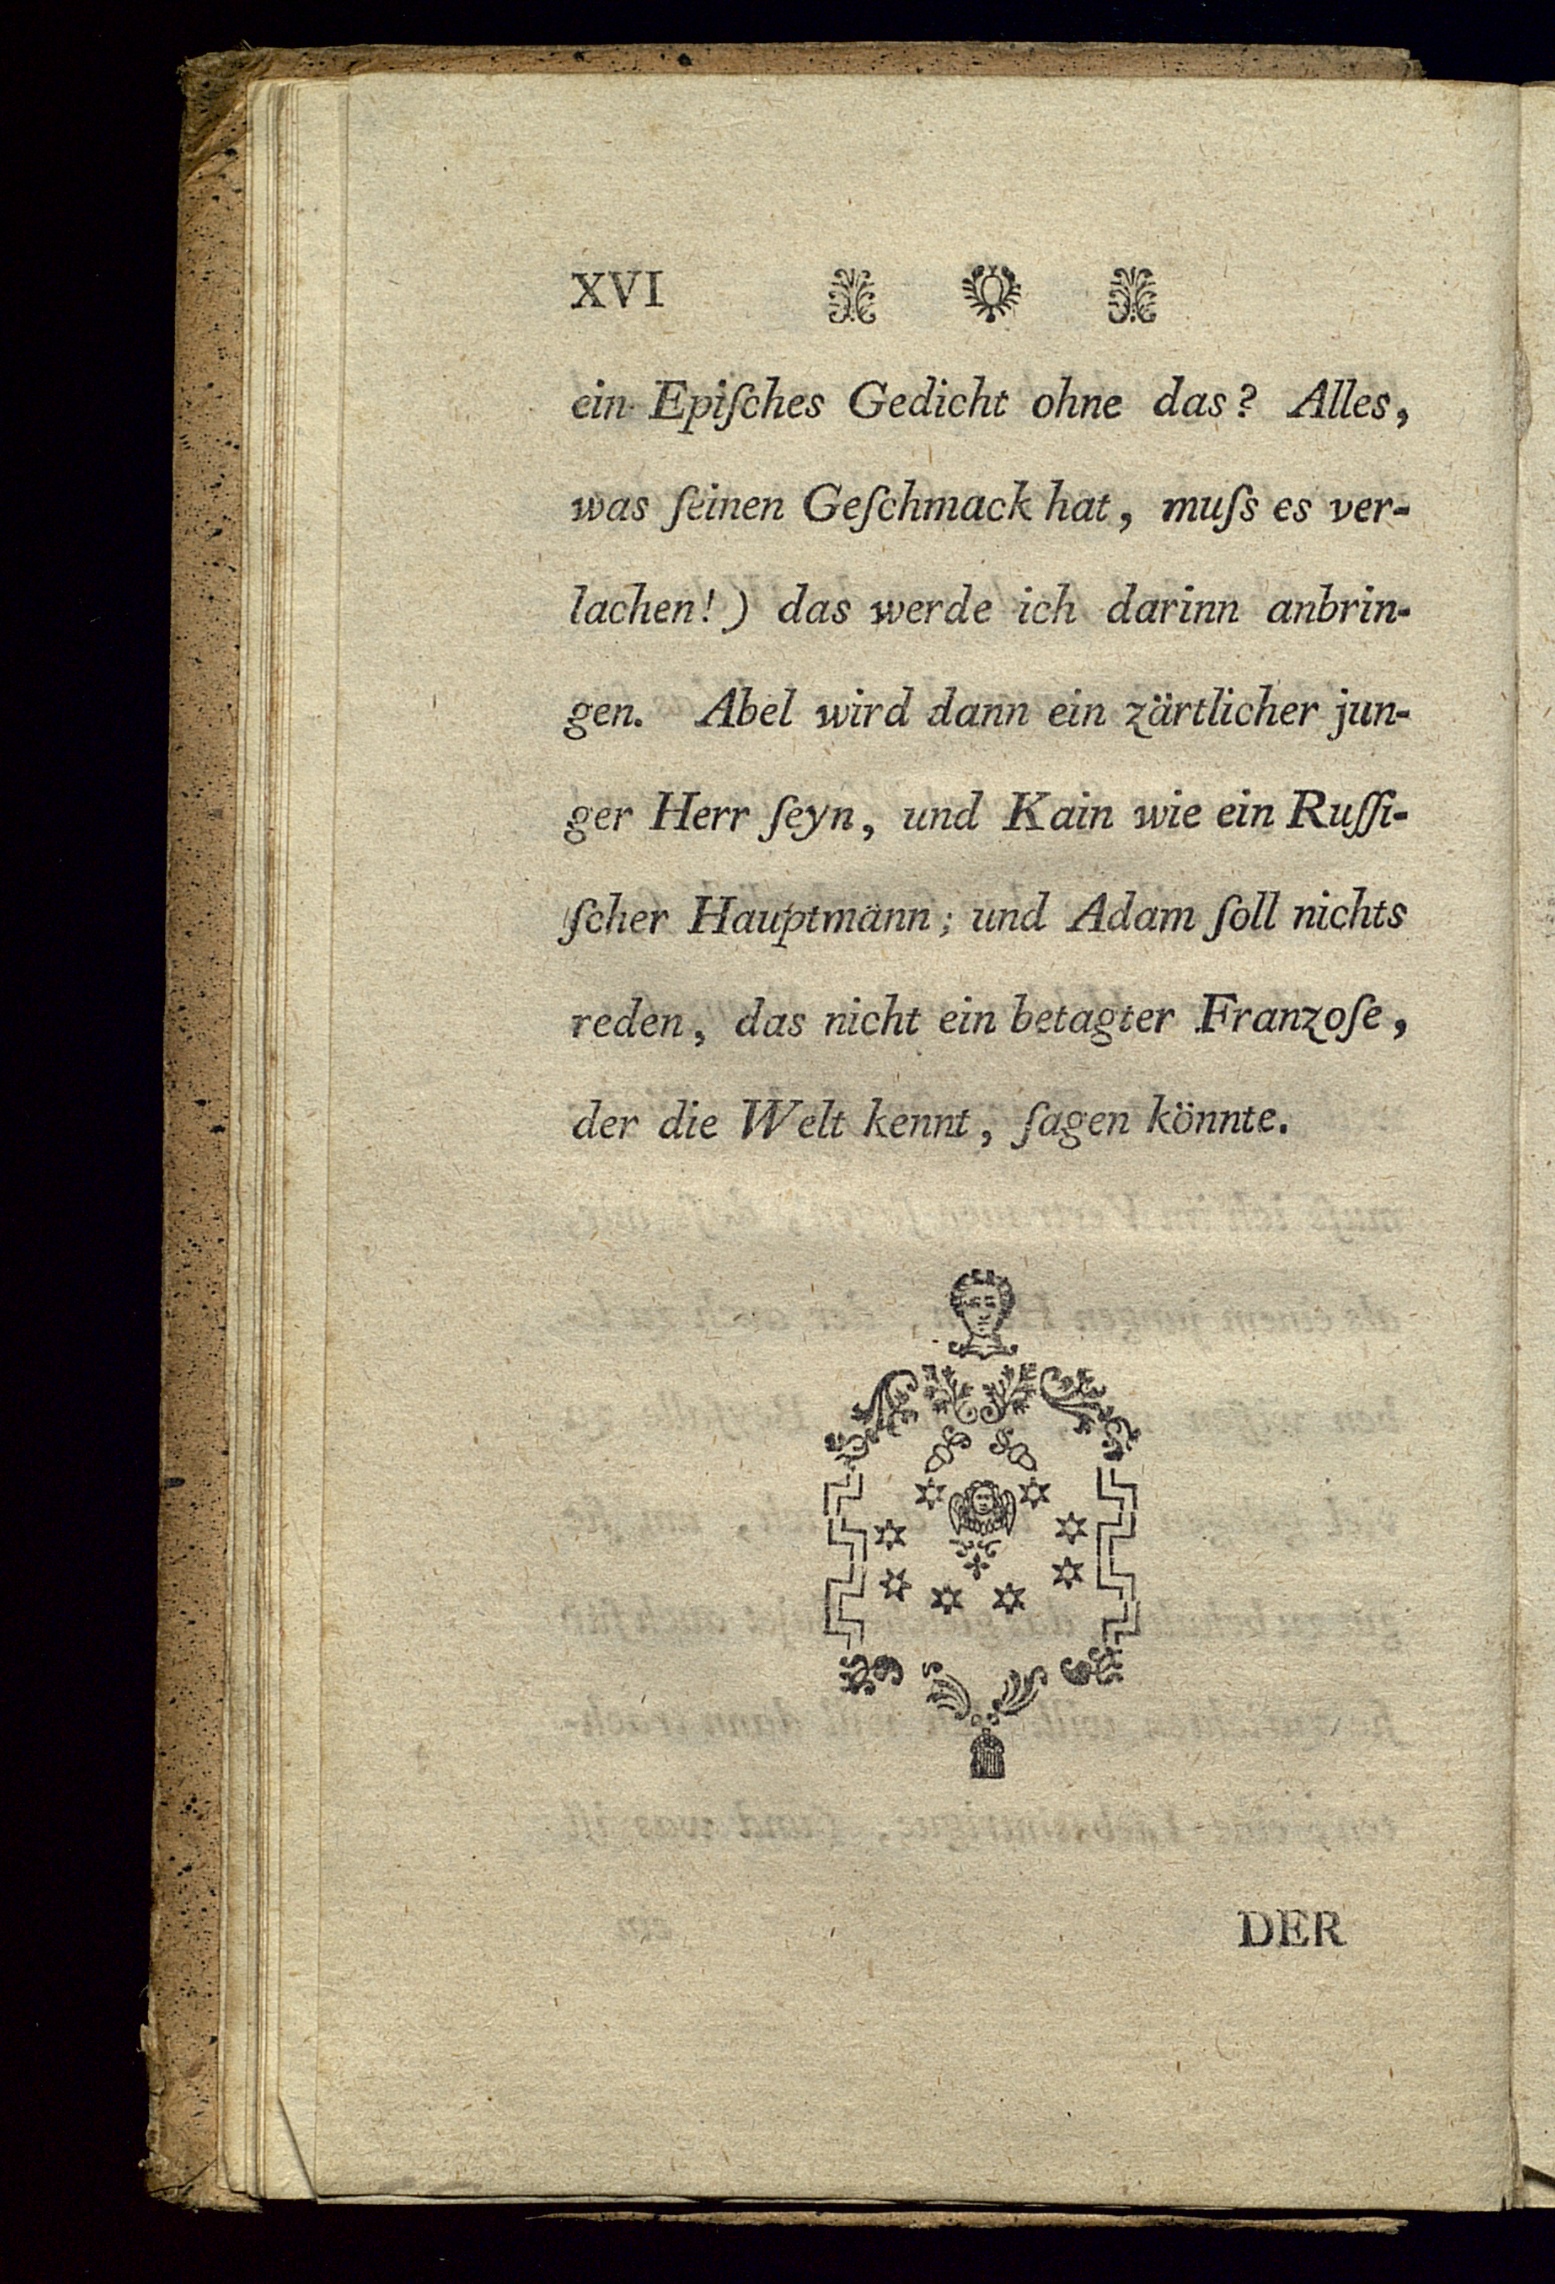 XVI
ein Epiſches Gedicht ohne das? Alles,
was ſeinen Geſchmack hat, muſs es ver-
lachen!) das werde ich darinn anbrin-
gen. Abel wird dann ein zärtlicher jun-
ger Herr ſeyn, und Kain wie ein Ruſſi-
ſcher Hauptmann; und Adam ſoll nichts
reden, das nicht ein betagter Franzoſe,
der die Welt kennt, ſagen könnte.
DER